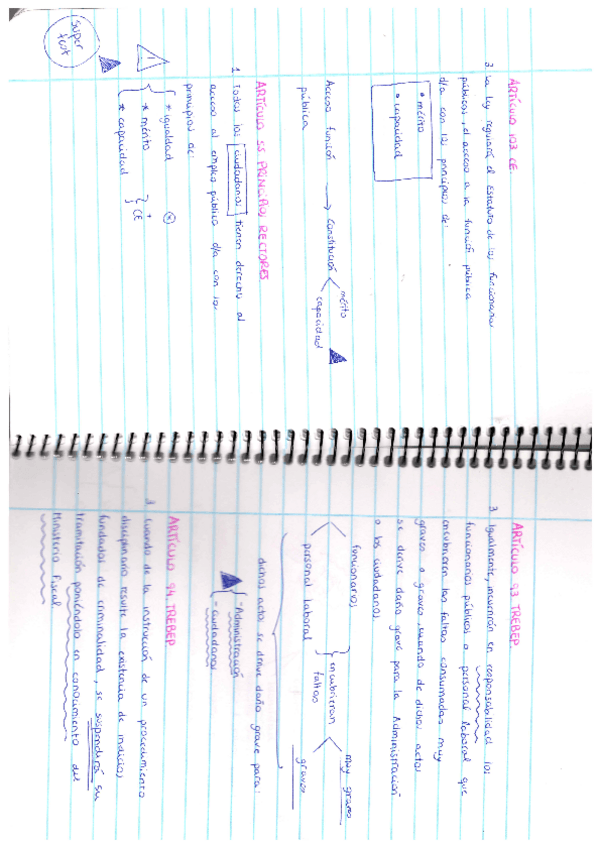 ARTÍCULO 103 CE.
3 La ley regulará el Estatuto de los funcionarios
públicos, el acceso a la función pública
d/a con los principios de:
* mérito
* capacidad
Acceso función → Constitución
pública
mérito
capacidad
ARTÍCULO 55 PRINCIPIOS RECTORES
1 Todos los ciudadanos tienen derecho al
acceso al empleo público d/a con los
principios de:
* igualdad
* mérito
* capacidad
} CE
!
super
test
ARTÍCULO 93 TREBEP
3 Igualmente, incurrirán en responsabilidad los
funcionarios públicos o personal laboral que
encubrieren las faltas consumadas muy
graves o graves, cuando de dichos actos
se derive daño grave para la Administración
o los ciudadanos
funcionarios
personal laboral
} encubrieran
faltas
muy graves
graves
dichos actos se derive daño grave para:
- Administración
- ciudadanos
ARTÍCULO 94. TREBEP
3. Cuando de la instrucción de un procedimiento
disciplinario resulte la existencia de indicios
fundados de criminalidad, se suspenderá su
tramitación poniéndolo en conocimiento del
Ministerio Fiscal